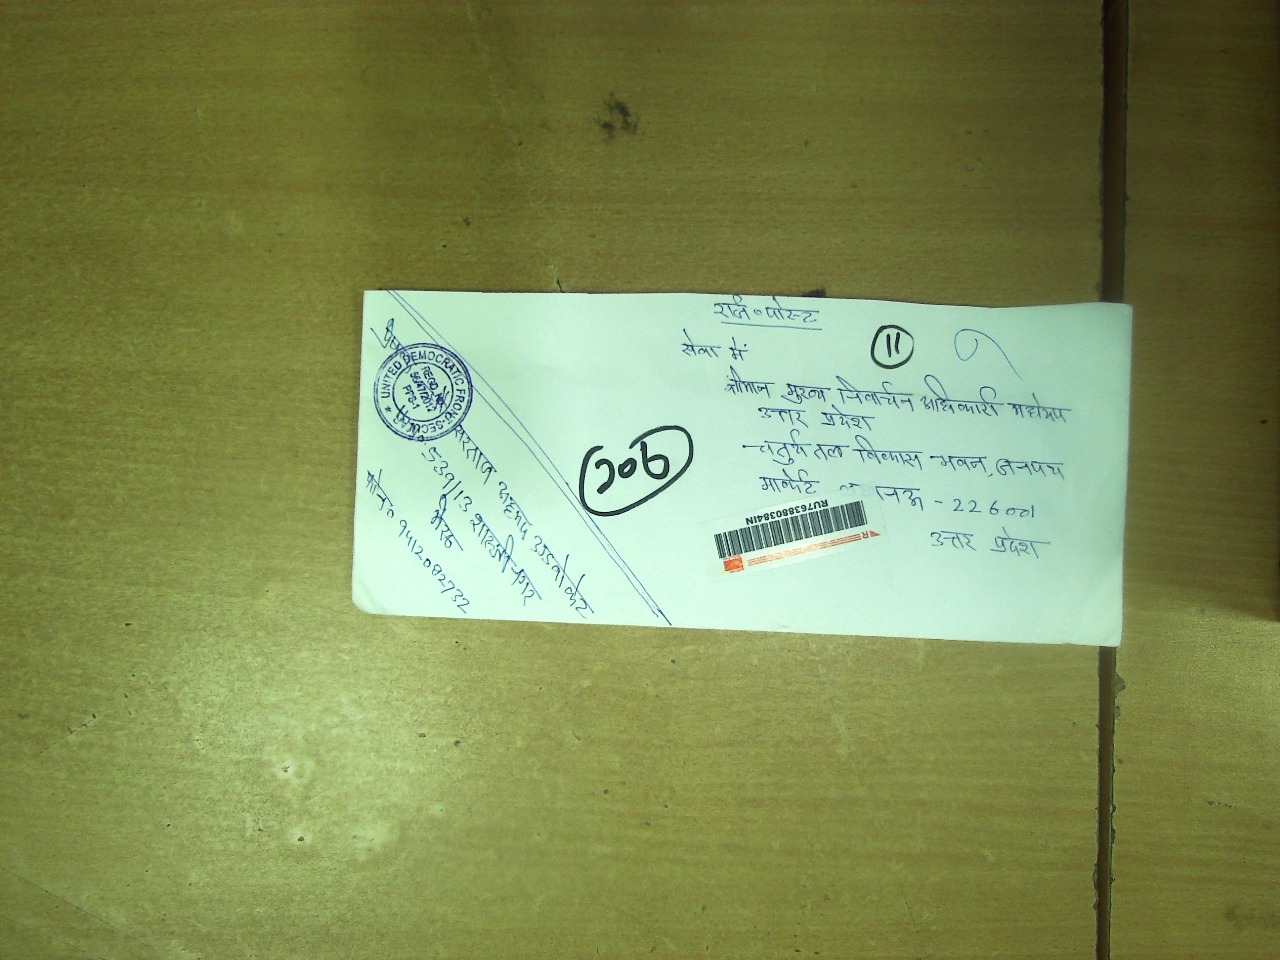 रजि॰ पोस्ट
11
सेवा में
श्रीमान मुख्य निर्वाचन अधिकारी महोदय
उत्तर प्रदेश
चतुर्थ तल विकास भवन, जनपथ
मार्केट लखनऊ - 226001
उत्तर प्रदेश
RU763880384IN
206
UNITED DEMOCRATIC FRONT-SECULAR
REGD. No.
56/47/2012
PPS-1
सरताज अहमद एडवोकेट
539/13 शास्त्री नगर
मेरठ
फोन॰ 9412082732